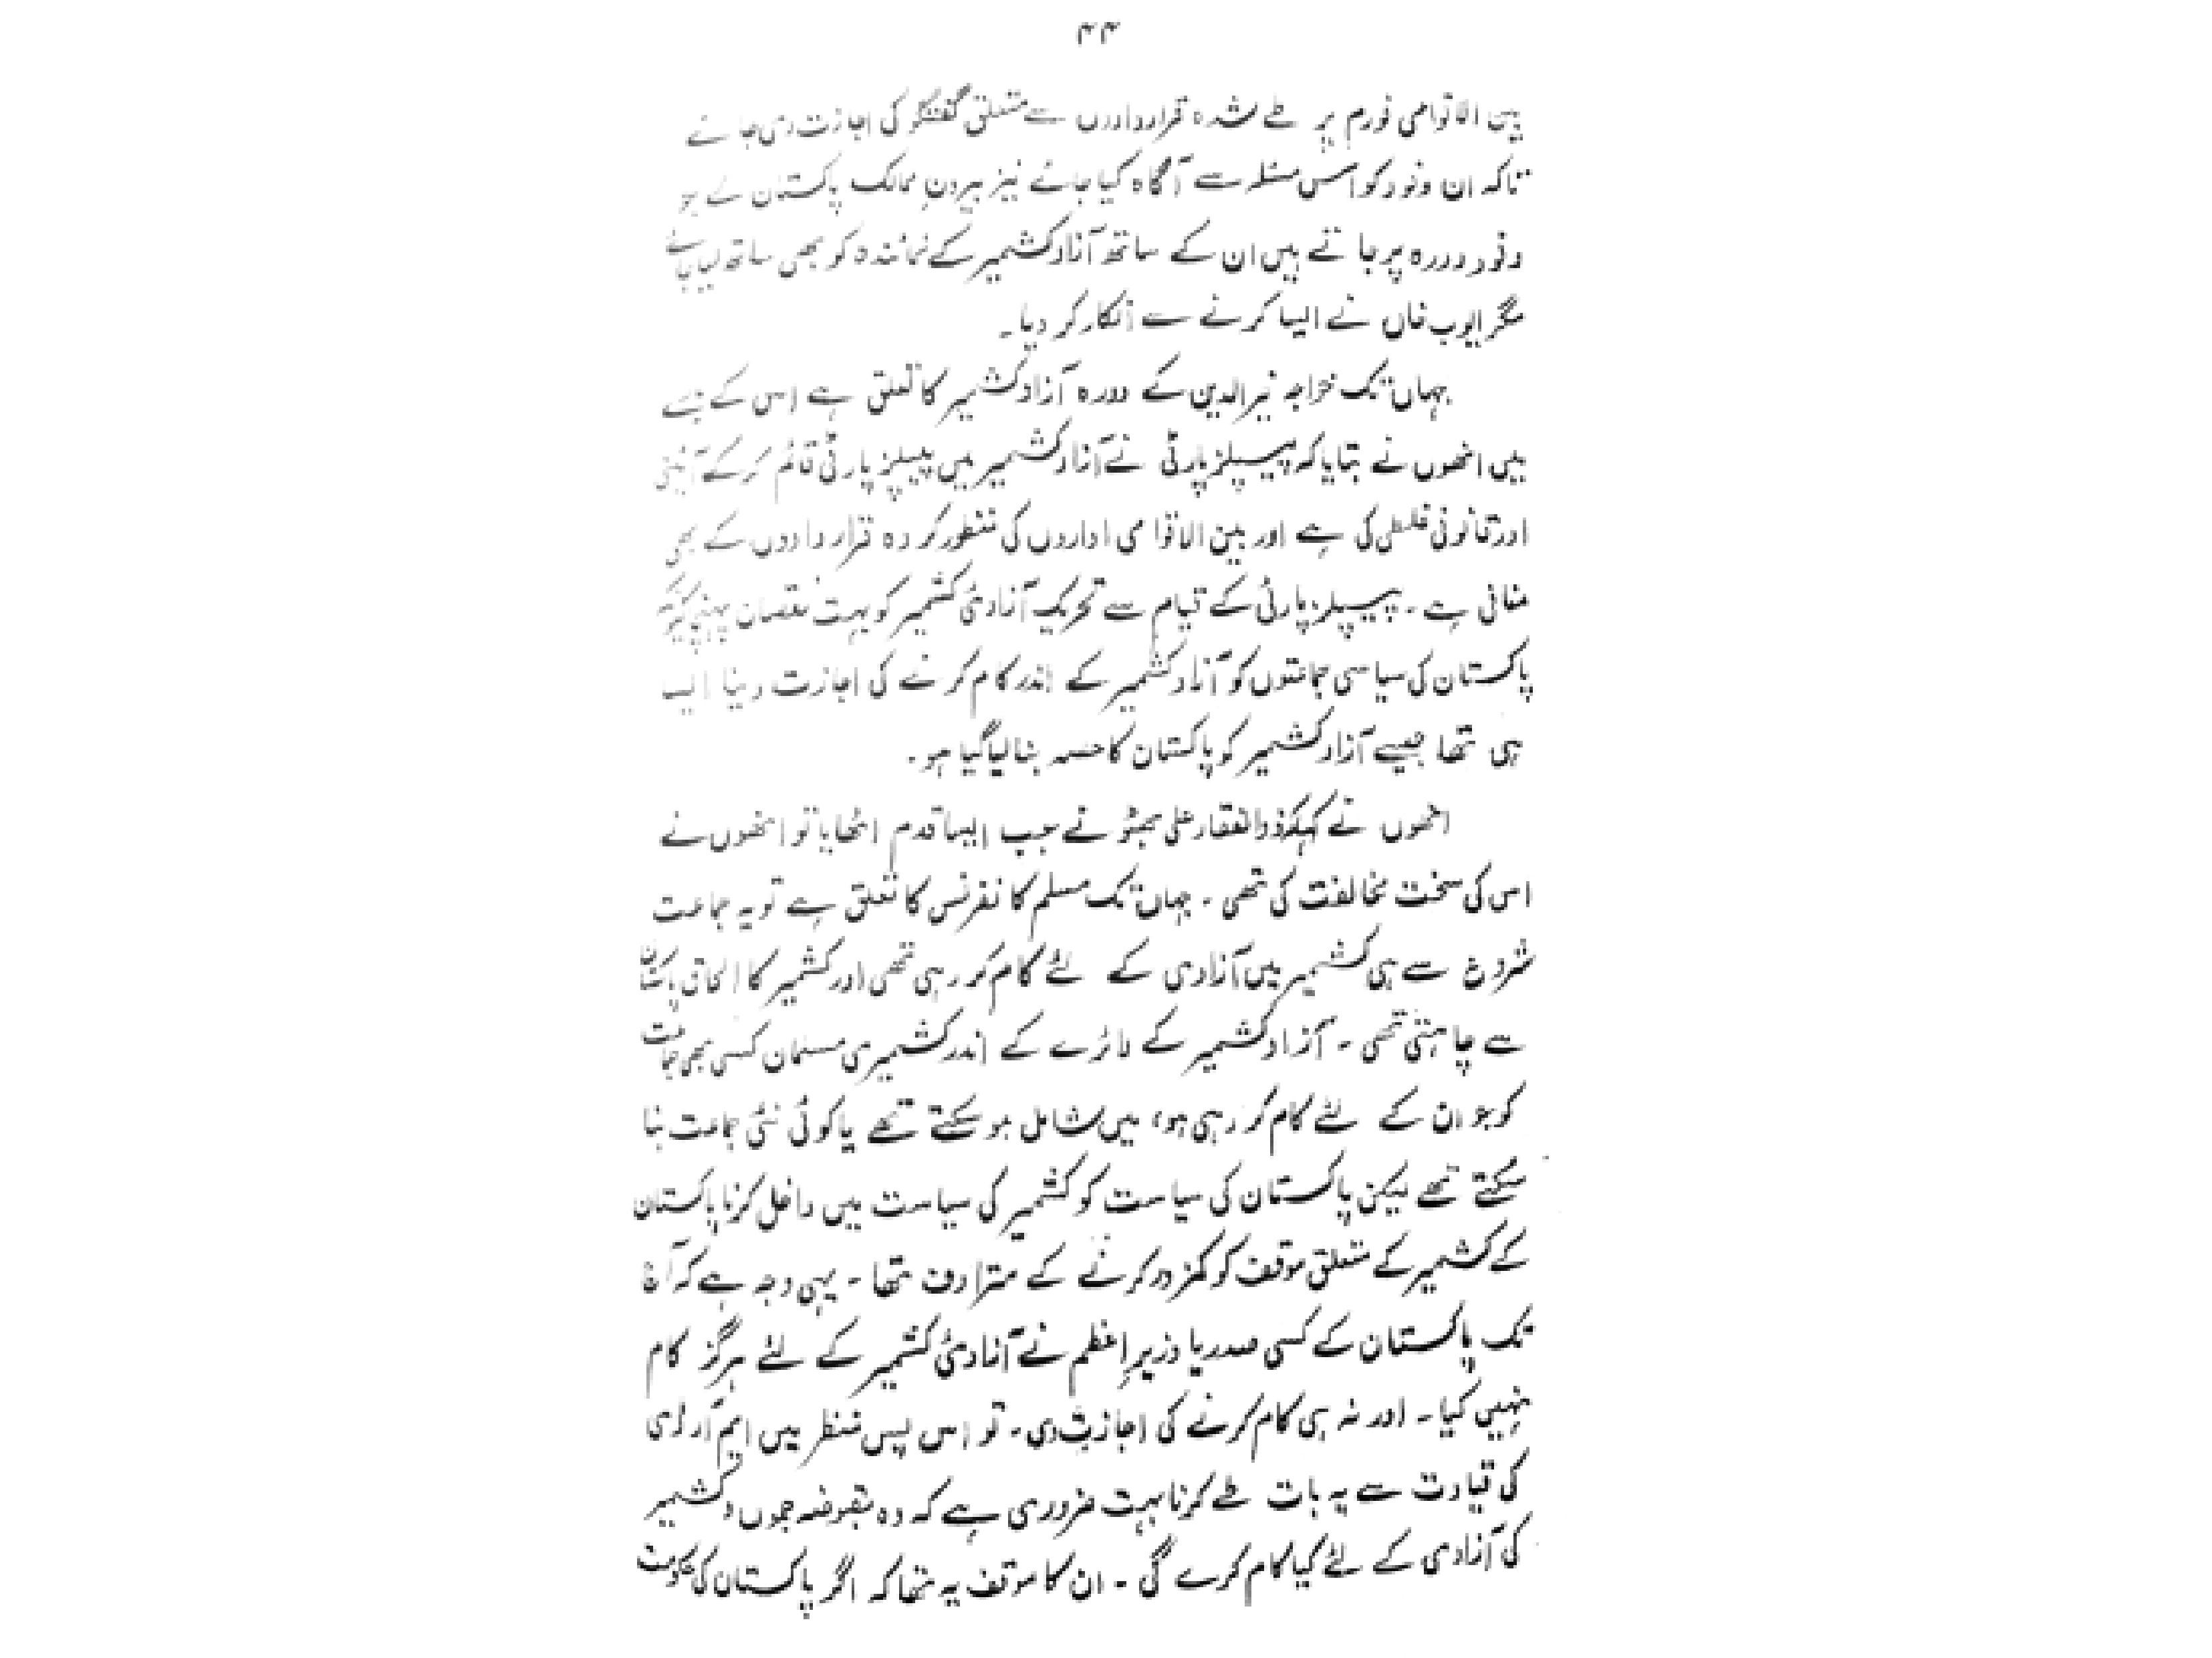 ۴۴
بین الاقوامی فورم پر طے شدہ قراردادوں سے متعلق گفتگو کی اجازت دی جائے
تاکہ ان وفود کو اس مسئلہ سے آگاہ کیا جائے نیز بیرون ممالک پاکستان سے جو
وفود دورہ پر جاتے ہیں ان کے ساتھ آزاد کشمیر کے نمائندہ کو بھی ساتھ لیا جائے
مگر ایوب خاں نے ایسا کرنے سے انکار کر دیا۔
جہاں تک خواجہ خیرالدین کے دورہ آزاد کشمیر کا تعلق ہے اس کے
میں انھوں نے بتایا کہ پیپلز پارٹی نے آزاد کشمیر میں پیپلز پارٹی قائم کر کے آئینی
اور قانونی غلطی کی ہے اور بین الاقوامی اداروں کی منظور کردہ قراردادوں کے بھی
منافی ہے۔ پیپلز پارٹی کے قیام سے تحریک آزادیٔ کشمیر کو بہت نقصان
پاکستان کی سیاسی جماعتوں کو آزاد کشمیر کے اندر کام کرنے کی اجازت دینا ایسا
ہی تھا جیسے آزاد کشمیر کو پاکستان کا حصہ بنا لیا گیا ہو۔
انھوں نے کہا کہ ذوالفقار علی بھٹو نے جب ایسا قدم اٹھایا تو انھوں نے
اس کی سخت مخالفت کی تھی۔ جہاں تک مسلم کانفرنس کا تعلق ہے تو یہ جماعت
شروع سے ہی کشمیر میں آزادی کے لئے کام کر رہی تھی اور کشمیر کا الحاق پاکستان
سے چاہتی تھی۔ آزاد کشمیر کے دائرے کے اندر کشمیری مسلمان کسی بھی جماعت
کو جو ان کے لئے کام کر رہی ہو، میں شامل ہو سکتے تھے یا کوئی نئی جماعت بنا
سکتے تھے لیکن پاکستان کی سیاست کو کشمیر کی سیاست میں داخل کرنا پاکستان
کے کشمیر کے متعلق موقف کو کمزور کرنے کے مترادف تھا۔ یہی وجہ ہے کہ آج
تک پاکستان کے کسی صدر یا وزیرِ اعظم نے آزادیٔ کشمیر کے لئے ہرگز کام
نہیں کیا۔ اور نہ ہی کام کرنے کی اجازت دی۔ تو اس پس منظر میں ایم آر ڈی
کی قیادت سے یہ بات طے کرنا بہت ضروری ہے کہ وہ مقبوضہ جموں و کشمیر
کی آزادی کے لئے کیا کام کرے گی۔ ان کا موقف یہ تھا کہ اگر پاکستان کی حکومت